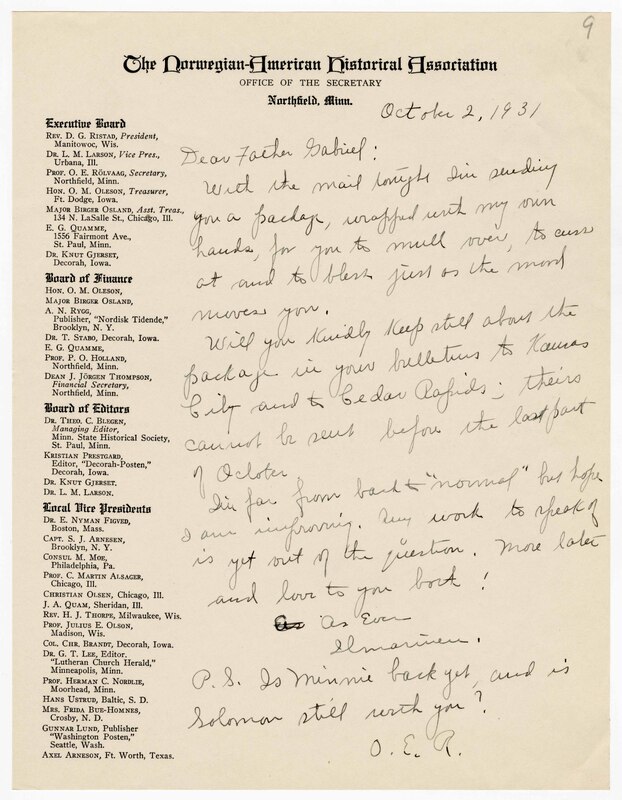 9
The Norwegian-American Historical Association
OFFICE OF THE SECRETARY
Northfield, Minn.
October 2, 1931
Executive Board
REV. D. G. RISTAD, President,
Manitowoc, Wis.
DR. L. M. LARSON, Vice Pres.,
Urbana, Ill.
PROF. O. E. RÖLVAAG, Secretary,
Northfield, Minn.
HON. O. M. OLESON, Treasurer,
Ft. Dodge, Iowa.
MAJOR BIRGER OSLAND, Asst. Treas.,
134 N. LaSalle St., Chicago, Ill.
E. G. QUAMME,
1556 Fairmont Ave.,
St. Paul, Minn.
DR. KNUT GJERSET,
Decorah, Iowa.
Board of Finance
HON. O. M. OLESON,
MAJOR BIRGER OSLAND,
A. N. RYGG,
Publisher, "Nordisk Tidende,"
Brooklyn, N. Y.
DR. T. STABO, Decorah, Iowa.
E. G. QUAMME,
PROF. P. O. HOLLAND,
Northfield, Minn.
DEAN J. JÖRGEN THOMPSON,
Financial Secretary,
Northfield, Minn.
Board of Editors
DR. THEO. C. BLEGEN,
Managing Editor,
Minn. State Historical Society,
St. Paul, Minn.
KRISTIAN PRESTGARD,
Editor, "Decorah-Posten,"
Decorah, Iowa.
DR. KNUT GJERSET.
DR. L. M. LARSON.
Local Vice Presidents
DR. E. NYMAN FIGVED,
Boston, Mass.
CAPT. S. J. ARNESEN,
Brooklyn, N. Y.
CONSUL M. MOE,
Philadelphia, Pa.
PROF. C. MARTIN ALSAGER,
Chicago, Ill.
CHRISTIAN OLSEN, Chicago, Ill.
J. A. QUAM, Sheridan, Ill.
REV. H. J. THORPE, Milwaukee, Wis.
PROF. JULIUS E. OLSON,
Madison, Wis.
COL. CHR. BRANDT, Decorah, Iowa.
DR. G. T. LEE, Editor.
"Lutheran Church Herald,"
Minneapolis, Minn.
PROF. HERMAN C. NORDLIE,
Moorhead, Minn.
HANS USTRUD, Baltic, S. D.
MRS. FRIDA BUE-HOMNES,
Crosby, N. D.
GUNNAR LUND, Publisher
"Washington Posten,"
Seattle, Wash.
AXEL ARNESON, Ft. Worth, Texas.
Dear Father Gabriel:
With the mail tonight I'm sending
you a package, wrapped with my own
hands, for you to mull over, to curse
at and to bless just as the mood
moves you.
Will you kindly keep still about the
package in your bulletins to Kansas
City and to Cedar Rapids; theirs
cannot be sent before the last part
of October
I'm far from back to "normal" but hope
I am improving. Any work to speak of
is yet out of the question. More later
and love to you both!
As As Ever
Ilmarinen.
P.S. Is Minnie back yet, and is
Solomon still with you?
O. E. R.